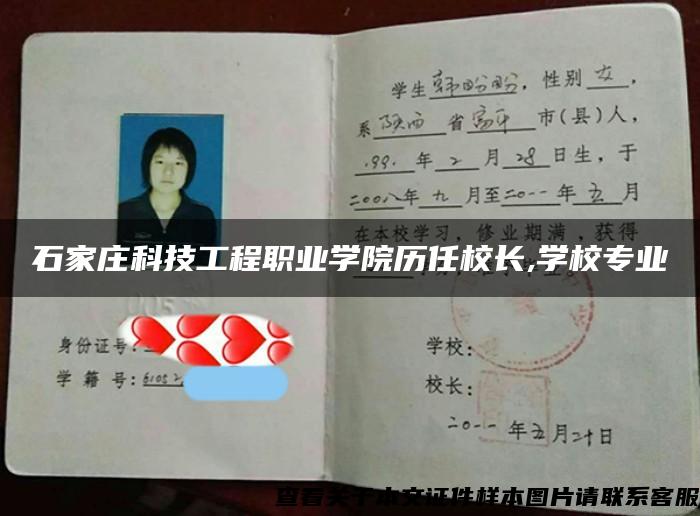 学生韩盼盼，性别女，
系陕西省富平市(县)人，
1991年2月28日生，于
二00八年九月至二0一一年五月
在本校学习，修业期满，获得
石家庄科技工程职业学院历任校长,学校专业
身份证号:
学籍号:61052
学校:
校长:
二0一一年五月二十日
查看关于本文证件样本图片请联系客服